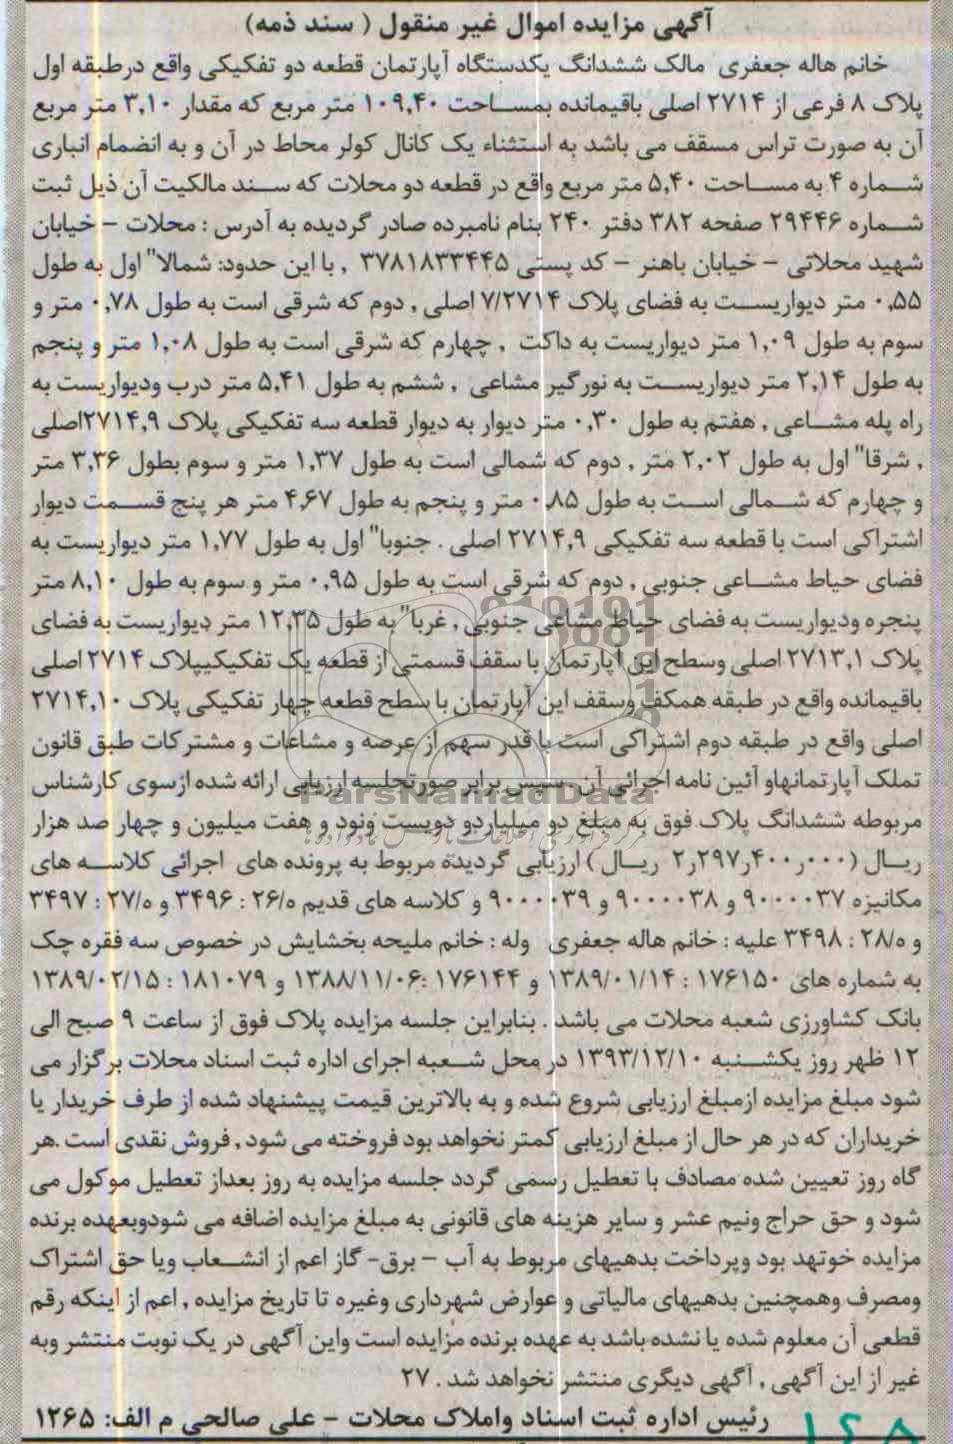 آگهی مزایده اموال غیر منقول ( سند ذمه)
خانم هاله جعفری مالک ششدانگ یکدستگاه آپارتمان قطعه دو تفکیکی واقع درطبقه اول
پلاک ۸ فرعی از ۲۷۱۴ اصلی باقیمانده بمساحت ۱۰۹,۴۰ متر مربع که مقدار ۳,۱۰ متر مربع
آن به صورت تراس مسقف می باشد به استثناء یک کانال کولر محاط در آن و به انضمام انباری
شماره ۴ به مساحت ۵,۴۰ متر مربع واقع در قطعه دو محلات که سند مالکیت آن ذیل ثبت
شماره ۲۹۴۴۶ صفحه ۳۸۲ دفتر ۲۴۰ بنام نامبرده صادر گردیده به آدرس : محلات – خیابان
شهید محلاتی – خیابان باهنر – کد پستی ۳۷۸۱۸۳۳۴۴۵ , با این حدود: شمالا" اول به طول
۰,۵۵ متر دیواریست به فضای پلاک ۷/۲۷۱۴ اصلی , دوم که شرقی است به طول ۰,۷۸ متر و
سوم به طول ۱,۰۹ متر دیواریست به داکت , چهارم که شرقی است به طول ۱,۰۸ متر و پنجم
به طول ۲,۱۴ متر دیواریست به نورگیر مشاعی , ششم به طول ۵,۴۱ متر درب ودیواریست به
راه پله مشاعی , هفتم به طول ۰,۳۰ متر دیوار به دیوار قطعه سه تفکیکی پلاک ۲۷۱۴,۹اصلی
, شرقا" اول به طول ۲,۰۲ متر , دوم که شمالی است به طول ۱,۳۷ متر و سوم بطول ۳,۳۶ متر
و چهارم که شمالی است به طول ۰,۸۵ متر و پنجم به طول ۴,۶۷ متر هر پنج قسمت دیوار
اشتراکی است با قطعه سه تفکیکی ۲۷۱۴,۹ اصلی . جنوبا" اول به طول ۱,۷۷ متر دیواریست به
فضای حیاط مشاعی جنوبی , دوم که شرقی است به طول ۰,۹۵ متر و سوم به طول ۸,۱۰ متر
پنجره ودیواریست به فضای حیاط مشاعی جنوبی , غربا" به طول ۱۲,۳۵ متر دیواریست به فضای
پلاک ۲۷۱۳,۱ اصلی وسطح این اپارتمان با سقف قسمتی از قطعه یک تفکیکیپلاک ۲۷۱۴ اصلی
باقیمانده واقع در طبقه همکف وسقف این آپارتمان با سطح قطعه چهار تفکیکی پلاک ۲۷۱۴,۱۰
اصلی واقع در طبقه دوم اشتراکی است با قدر سهم از عرصه و مشاعات و مشترکات طبق قانون
تملک آپارتمانهاو آئین نامه اجرائی آن. سپس برابر صورتجلسه ارزیابی ارائه شده ازسوی کارشناس
مربوطه ششدانگ پلاک فوق به مبلغ دو میلیاردو دویست ونود و هفت میلیون و چهار صد هزار
ریال (۲٫۲۹۷٫۴۰۰٫۰۰۰ ریال ) ارزیابی گردیده مربوط به پرونده های اجرائی کلاسه های
مکانیزه ۹۰۰۰۰۳۷ و ۹۰۰۰۰۳۸ و ۹۰۰۰۰۳۹ و کلاسه های قدیم ۲۶/ه : ۳۴۹۶ و ۲۷/ه : ۳۴۹۷
و ۲۸/ه : ۳۴۹۸ علیه : خانم هاله جعفری وله : خانم ملیحه بخشایش در خصوص سه فقره چک
به شماره های ۱۷۶۱۵۰ : ۱۳۸۹/۰۱/۱۴ و ۱۷۶۱۴۴ :۱۳۸۸/۱۱/۰۶ و ۱۸۱۰۷۹ : ۱۳۸۹/۰۲/۱۵
بانک کشاورزی شعبه محلات می باشد . بنابراین جلسه مزایده پلاک فوق از ساعت ۹ صبح الی
۱۲ ظهر روز یکشنبه ۱۳۹۳/۱۲/۱۰ در محل شعبه اجرای اداره ثبت اسناد محلات برگزار می
شود مبلغ مزایده ازمبلغ ارزیابی شروع شده و به بالاترین قیمت پیشنهاد شده از طرف خریدار یا
خریداران که در هر حال از مبلغ ارزیابی کمتر نخواهد بود فروخته می شود , فروش نقدی است .هر
گاه روز تعیین شده مصادف با تعطیل رسمی گردد جلسه مزایده به روز بعداز تعطیل موکول می
شود و حق حراج ونیم عشر و سایر هزینه های قانونی به مبلغ مزایده اضافه می شودوبعهده برنده
مزایده خوتهد بود وپرداخت بدهیهای مربوط به آب – برق- گاز اعم از انشعاب ویا حق اشتراک
ومصرف وهمچنین بدهیهای مالیاتی و عوارض شهرداری وغیره تا تاریخ مزایده , اعم از اینکه رقم
قطعی آن معلوم شده یا نشده باشد به عهده برنده مزایده است واین آگهی در یک نوبت منتشر وبه
غیر از این آگهی , آگهی دیگری منتشر نخواهد شد . ۲۷
رئیس اداره ثبت اسناد واملاک محلات - علی صالحی م الف: ۱۲۶۵
ParsNamadData